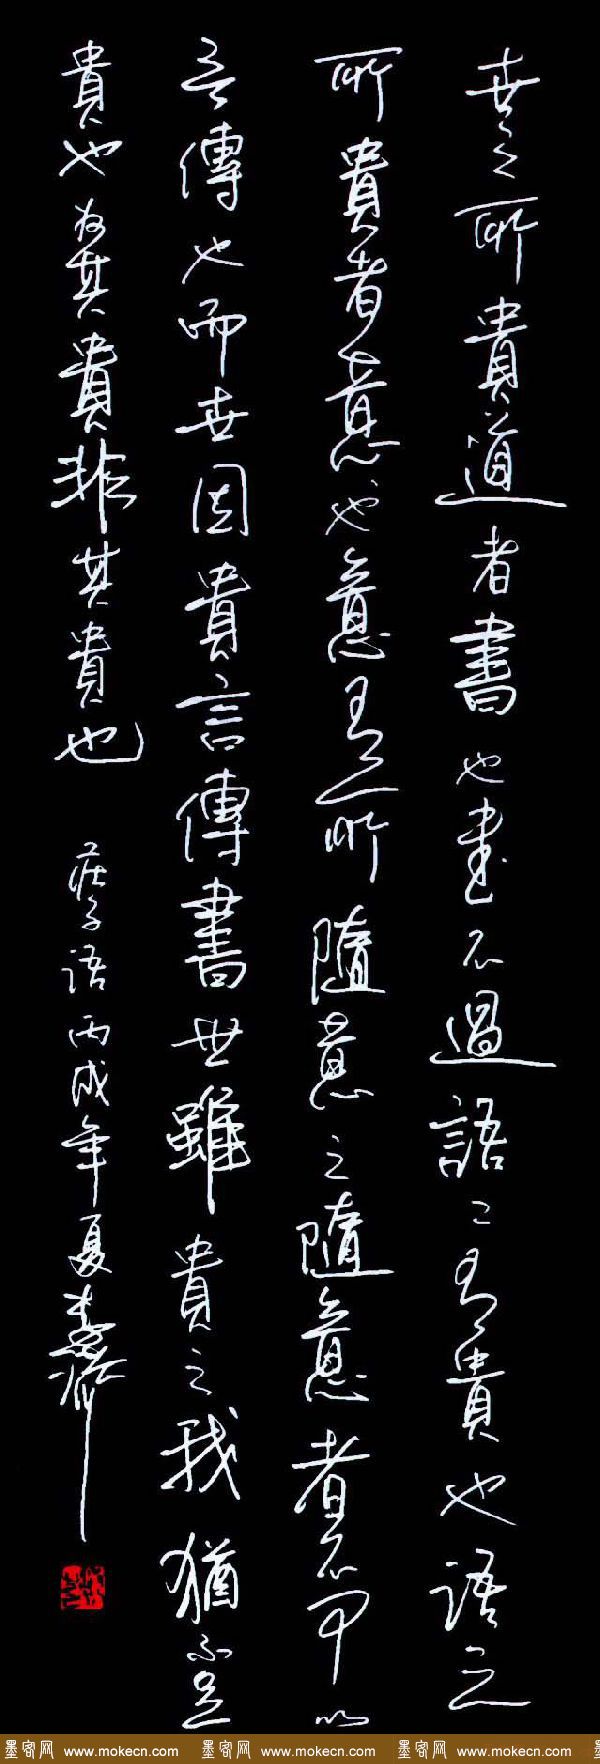 世之所貴道者書也書不過語〻有貴也語之
所貴者意也意有所隨意之隨意者不可以
言傳也而世因貴言傳書世雖貴之我猶不足
貴也為其貴非其貴也 莊子語丙戌年夏
墨客网 www.mokecn.com 墨客网 www.mokecn.com 墨客网 www.mokecn.com 墨客网 www.mokecn.com